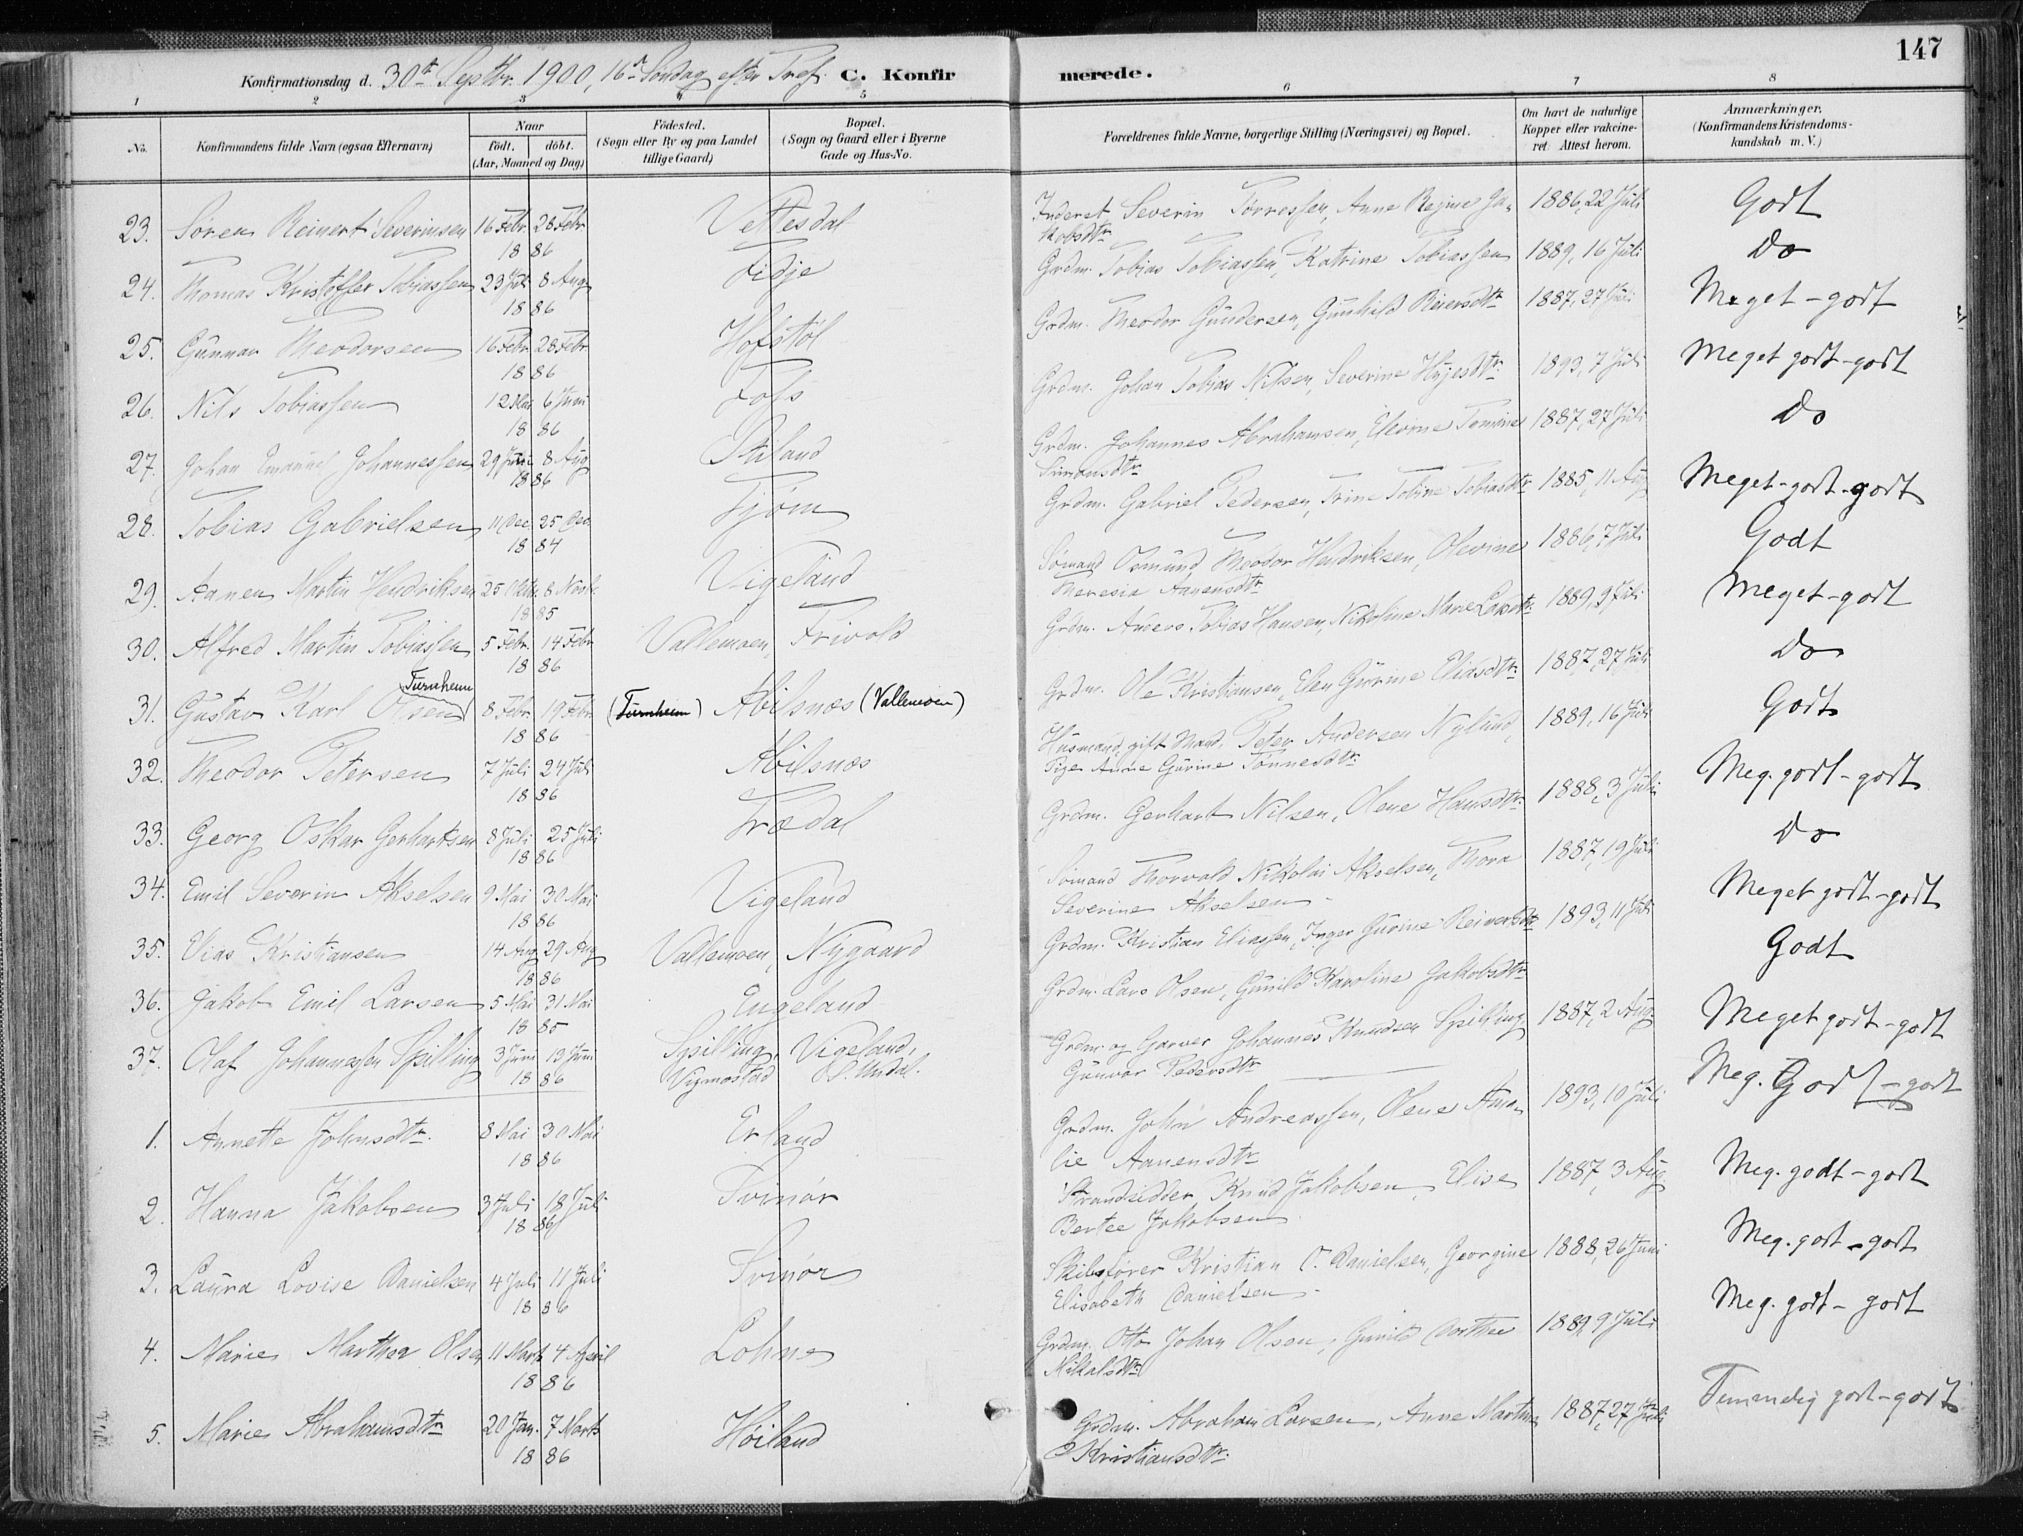 147
Konfirmationsdag d. 30te Septbr. 1900, 16de Søndag efter Tref. C. Konfirmerede.
1 2 3 4 5 6 7 8
No. Konfirmandens fulde Navn (ogsaa Efternavn) Naar født. døbt. (Aar, Maaned og Dag) Fødested. (Sogn eller By og paa Landet tillige Gaard) Bopæl. (Sogn og Gaard eller i Byerne Gade og Hus-No. Forældrenes fulde Navne, borgerlige Stilling (Næringsvei) og Bopæl. Om havt de naturlige Kopper eller vakcineret. Attest herom. Anmærkninger. (Konfirmandens Kristendomskundskab m. V.)
23. Søren Reinert Severinsen 16 Febr. 28 Febr. 1886 Vettesdal Inderst Severin Tørressen, Anne Regine Jakobsdtr. 1886, 22 Juli Godt
24. Thomas Kristoffer Tobiassen 23 Juli 8 Aug. 1886 Fidje Grdm. Tobias Tobiassen, Katrine Tobiassen 1889, 16 Juli do
25. Gunnar Theodorsen 16 Febr. 28 Febr. 1886 Hofstøl Grdm. Theodor Gundersen, Gunhild Reiersdtr. 1887, 27 Juli Meget-godt
26. Nils Tobiassen 12 Mai 6 Juni 1886 Foss Grdm. Johan Tobias Nilsen, Severine 1893, 7 Juli Meget godt-godt
27. Johan Emanuel Johannessen 29 Juni 8 Aug 1886 Grdm. Johannes Abrahamsen, Elevine Tomine Simonsdtr. 1887, 27 Juli do
28. Tobias Gabrielsen 11 Dec. 25 Dec. 1884 Tjøm Grdm. Gabriel Pedersen, Trine Tobine Tobiasdtr. 1885, 11 Aug. Meget-godt-godt
29. Aanen Martin Hendriksen 25 Oktr. 8 Novbr. 1885 Vigeland Sømand Osmund Theodor Hendriksen, Olevine Theresia Aanensdtr. 1886, 7 Juli Godt
30. Alfred Martin Tobiassen 5 Febr. 14 Febr. 1886 Vallemoen, Frivold Grdm. Anders Tobias Hansen, Nikoline Marie Larsdtr. 1889, 9 Juli Meget-godt
31. Gustav Karl Olsen Turnheim 8 Febr. 19 Febr. 1886 (Turnheim) Abilsnæs (Vallemoen) Grdm. Ole Kristiansen, Elen Gurine Eliasdtr. 1887, 27 Juli do
32. Theodor Petersen 7 Juli 24 Juli 1886 Abilsnæs Husmand, gift Mand, Peter Andersen Nylund, Pige Anne Gurine Tønnesdtr. 1889, 16 Juli Godt
33. Georg Oskar Gerhartsen 8 Juli 25 Juli 1886 Trædal Grdm. Gerhart Nilsen, Olene Hansdtr. 1888, 3 Juli Meg. godt-godt
34. Emil Severin Akselsen 9 Mai 30 Mai 1886 Vigeland Sømand Thorvald Nikolai Akselsen, Thora Severine Akselsen 1887, 19 Juli do
35. Elias Kristiansen 14 Aug 29 Aug 1886 Vallemoen, Nygaard Grdm. Kristian Eliassen, Inger Gurine Reinertsdtr. 1893, 11 Juli Meget godt-godt
36. Jakob Emil Larsen 5 Mai 31 Mai 1885 Eugeland Grdm. Lars Olsen, Gunild Karoline Jakobsdtr. Godt
37. Olaf Johannessen Spilling 3 Juni 13 Juni 1886 Spilling, Vigmostad Vigeland, S. Undal. Grdm. og Garver Johannes Knudsen Spilling, Gunvor Pedersdtr. 1887, 2 Aug. Meget godt-godt
1. Annette Johnsdtr. 8 Mai 30 Mai 1886 Erland Grdm. John Andreassen, Olene Amalie Aanensdtr. 1893, 10 Juli Meg. Godt-godt
2. Hanna Jakobsen 3 Juli 18 Juli 1886 Svinør Strandsidder Knud Jakobsen, Elise Bertee Jakobsen 1887, 3 Aug. Meg. godt-godt
3. Laura Lovise Danielsen 4 Juli 11 Juli 1886 Svinør Skibsfører Kristian C. Danielsen, Georgine Elisabeth Danielsen 1888, 26 Juni Meg. godt-godt
4. Marie Marthea Olsen 11 Marts 4 April 1886 Lohne Grdm. Otto Johan Olsen, Gunild Dorthee Nikolsdtr. 1889, 9 Juli Meg. godt-godt
5. Marie Abrahamsdtr. 20 Jan. 7 Marts 1886 Høiland Grdm. Abraham Larsen, Anne Martine Kristiansdtr. 1887, 27 Juli Temmelig godt-godt